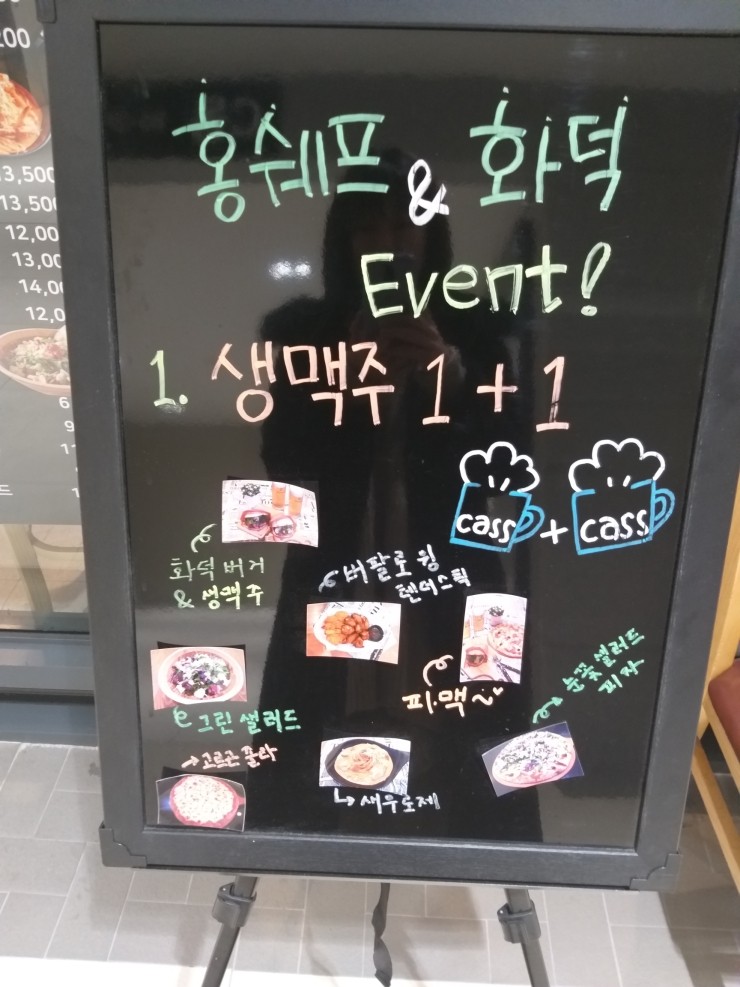 홍쉐프 & 화덕
Event!
1. 생맥주 1+1
cass + cass
화덕버거
& 생맥주
버팔로윙
텐더스틱
피.맥~♥
눈꽃샐러드
피자
그린샐러드
고르곤졸라
새우로제
200
13,500
13,50
12,00
13,00
14,0
12,0
6
9
11
드